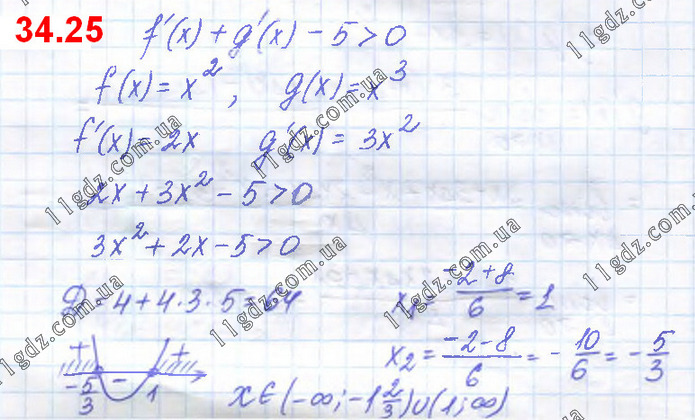 34.25
f'(x) + g'(x) - 5 > 0
f(x) = x², g(x) = x³
f'(x) = 2x g'(x) = 3x²
2x + 3x² - 5 > 0
3x² + 2x - 5 > 0
D = 4 + 4·3·5 = 64
x₁ = (-2+8)/6 = 1
x₂ = (-2-8)/6 = -10/6 = -5/3
+ - +
-5/3 1
x ∈ (-∞; -1 2/3) ∪ (1; ∞)
11gdz.com.ua
11gdz.com.ua
11gdz.com.ua
11gdz.com.ua
11gdz.com.ua
11gdz.com.ua
11gdz.com.ua
11gdz.com.ua